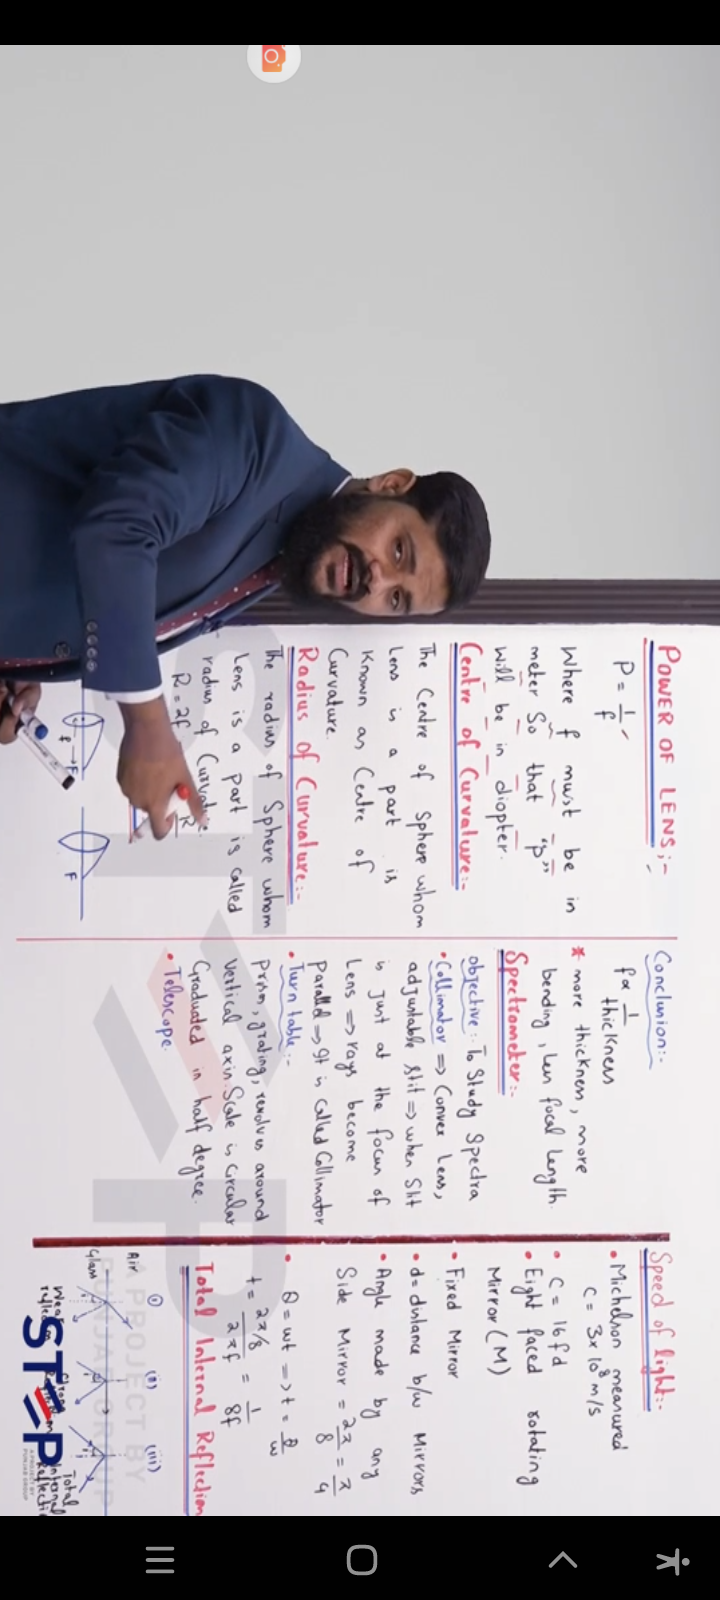 POWER OF LENS;-
P = 1/f
Where f must be in
meter So that "p"
will be in diopter.
Centre of Curvature:-
The Centre of Sphere whom
Lens is a part is
Known as Centre of
Curvature.
Radius of Curvature:-
The radius of Sphere whom
Lens is a part is called
radius of Curvature.
R = 2f
R
f
F
F
Conclusion:-
f ∝ 1/thickness
* more thickness, more
bending, Less focal Length.
Spectrometer:-
objective:- To Study Spectra
• Collimator => Convex Lens,
adjustable slit => when Slit
is just at the focus of
Lens => rays become
Parallel => It is called Collimator
• Turn table:-
Prism, grating, revolves around
Vertical axis. Scale is Circular
Graduated in half degree.
• Telescope.
Speed of light:-
• Michelson measured
C = 3x10⁸ m/s
• C = 16fd
• Eight faced rotating
Mirror (M)
• Fixed Mirror
• d = distance b/w Mirrors
• Angle made by any
Side Mirror = 2π/8 = π/4
• θ = wt => t = θ/w
t = 2π/8 / 2πf = 1/8f
Total Internal Reflection
(i) (ii) (iii)
Air
Glass
Total
STEP
A PROJECT BY
PUNJAB GROUP